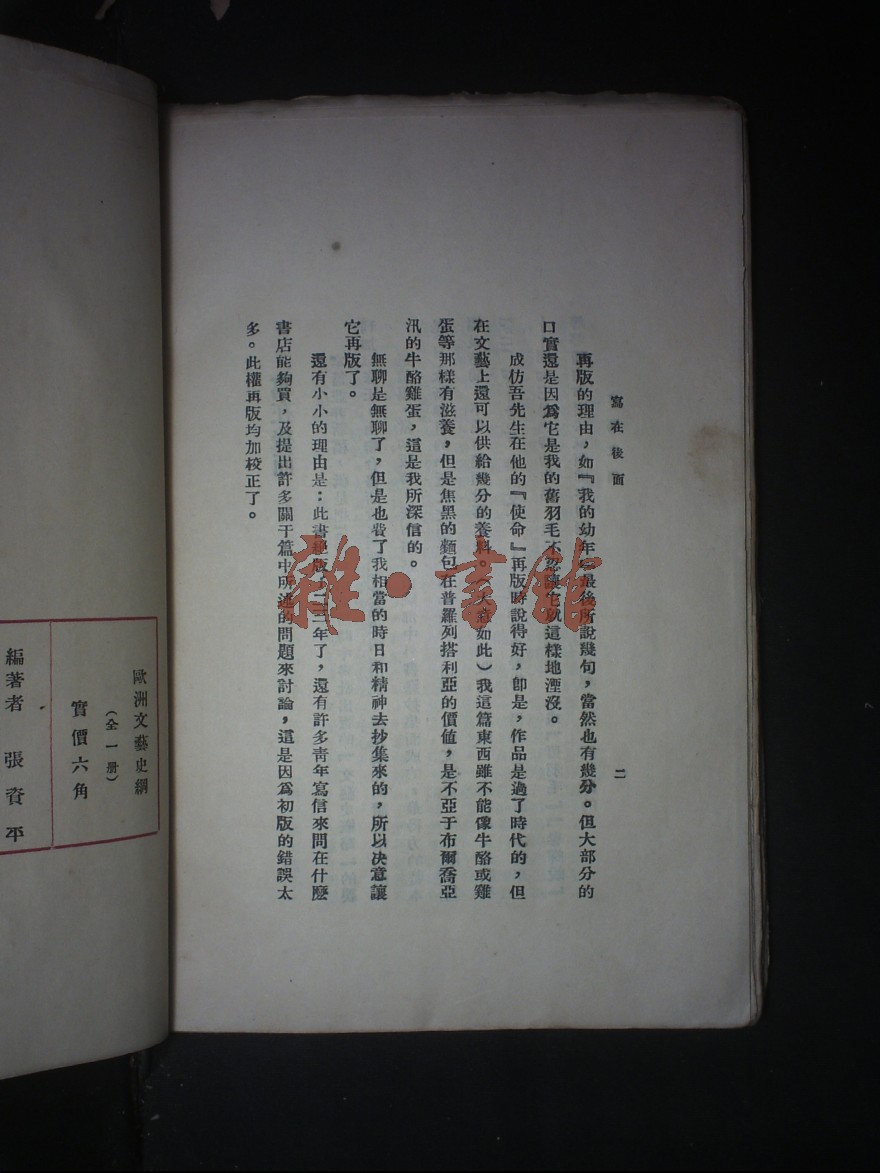 寫在後面
二
再版的理由，如『我的幼年』最後所說幾句，當然也有幾分。但大部分的
口實還是因爲它是我的舊羽毛不忍讓它就這樣地湮沒。
成仿吾先生在他的『使命』再版時說得好，卽是，作品是過了時代的，但
在文藝上還可以供給幾分的養料。（大意如此）我這篇東西雖不能像牛酪或雞
蛋等那樣有滋養，但是焦黑的麵包在普羅列搭利亞的價値，是不亞于布爾喬亞
汛的牛酪雞蛋，這是我所深信的。
無聊是無聊了，但是也費了我相當的時日和精神去抄集來的，所以決意讓
它再版了。
還有小小的理由是：此書絕版二三年了，還有許多靑年寫信來問在什麽
書店能夠買，及提出許多關于篇中所述的問題來討論，這是因爲初版的錯誤太
多。此權再版均加校正了。
歐洲文藝史綱
（全一册）
實價六角
編著者 張資平
雜·書館